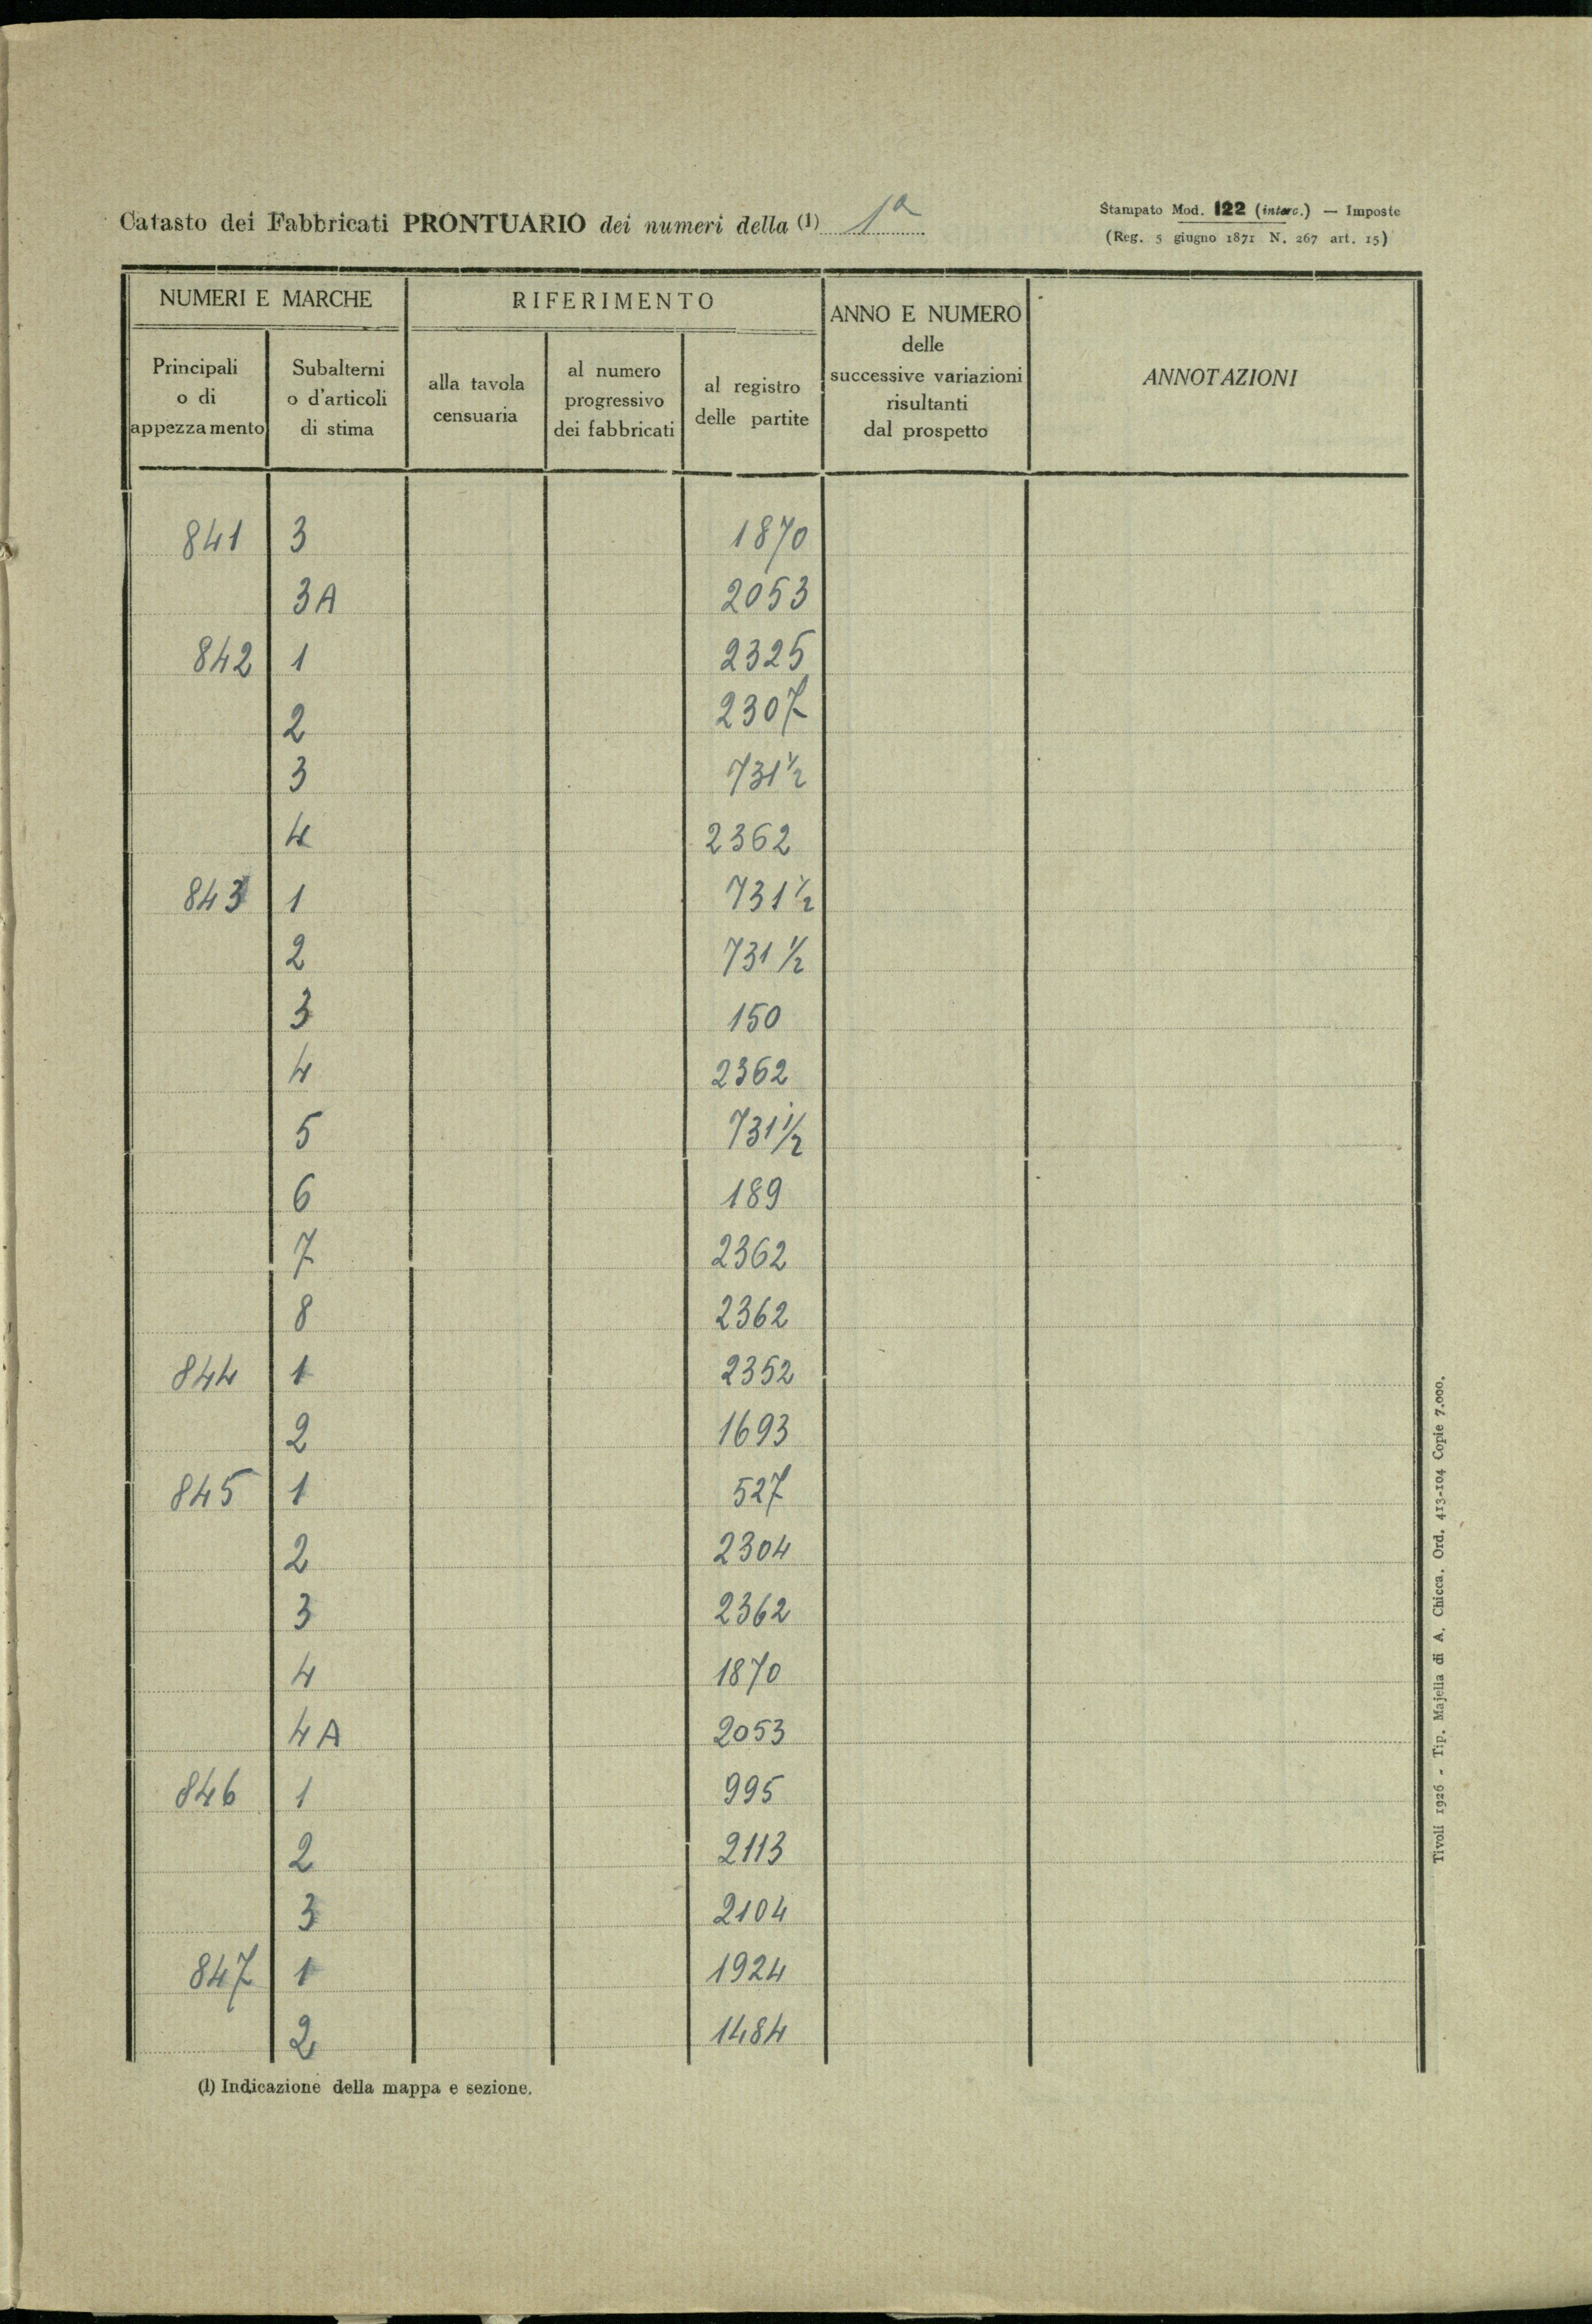 Catasto dei Fabbricati PRONTUARIO dei numeri della (1) 1a
Stampato Mod. 122 (interc.) — Imposte
(Reg. 5 giugno 1871 N. 267 art. 15)
NUMERI E MARCHE
RIFERIMENTO
ANNO E NUMERO
delle
successive variazioni
risultanti
dal prospetto
ANNOTAZIONI
Principali
o di
appezzamento
Subalterni
o d'articoli
di stima
alla tavola
censuaria
al numero
progressivo
dei fabbricati
al registro
delle partite
841 3 1870
3A 2053
842 1 2325
2 2307
3 731 1/2
4 2362
843 1 731 1/2
2 731 1/2
3 150
4 2362
5 731 1/2
6 189
7 2362
8 2362
844 1 2352
2 1693
845 1 527
2 2304
3 2362
4 1870
4A 2053
846 1 995
2 2113
3 2104
847 1 1924
2 1484
(1) Indicazione della mappa e sezione.
Tivoli 1926 - Tip. Majella di A. Chicca. Ord. 413-104 Copie 7.000.